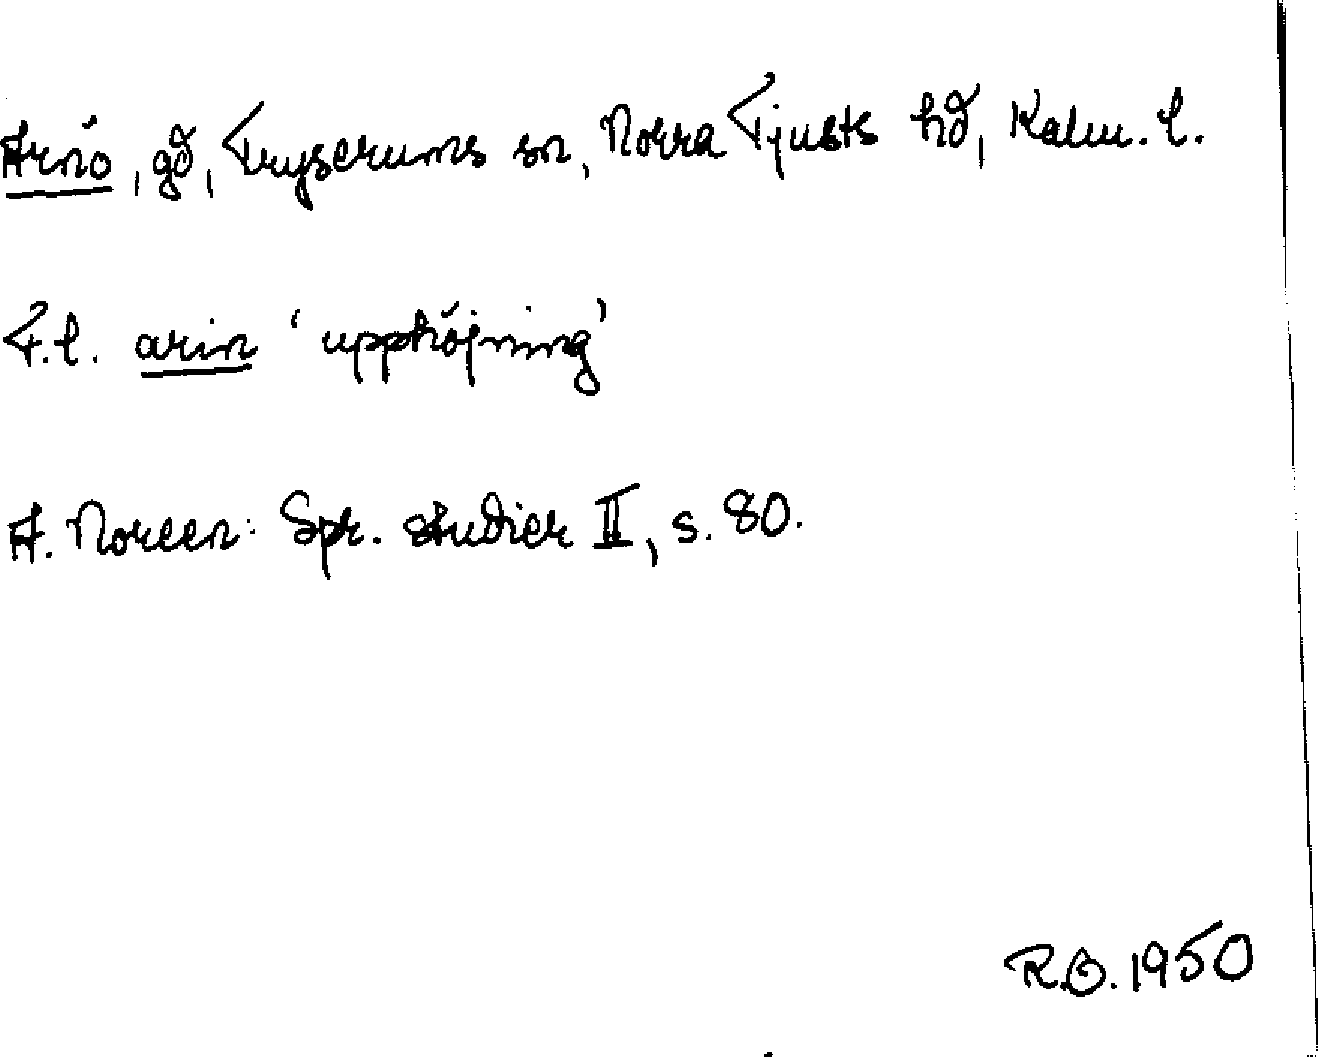 Arnö, gd, Tryserums sn, Norra Tjusts hd, Kalm. l.
T.l. arin 'upphöjning'
A. Noreen: Spr. studier II, s. 80.
R.O. 1950